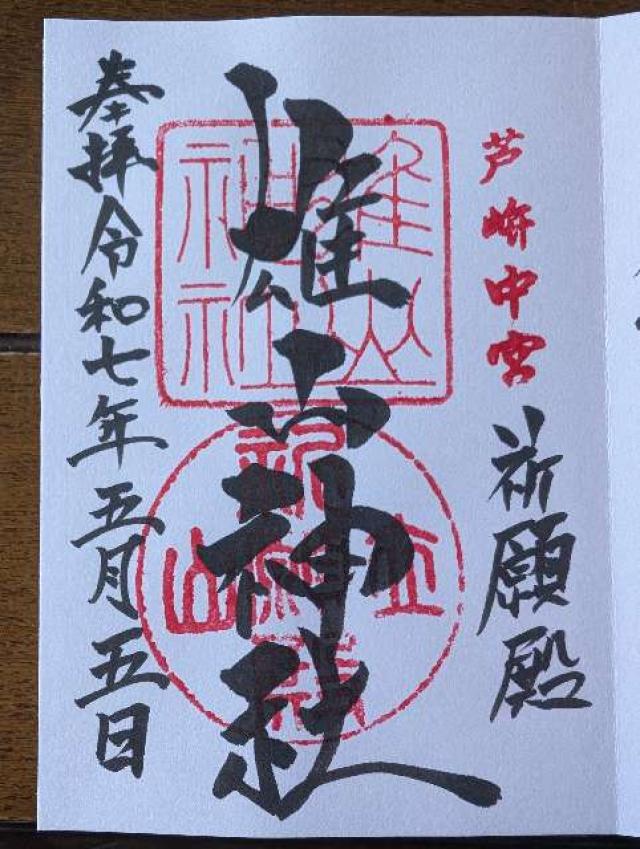 芦峅中宮
祈願殿
雄山神社
奉拝令和七年五月五日
雄山
神社